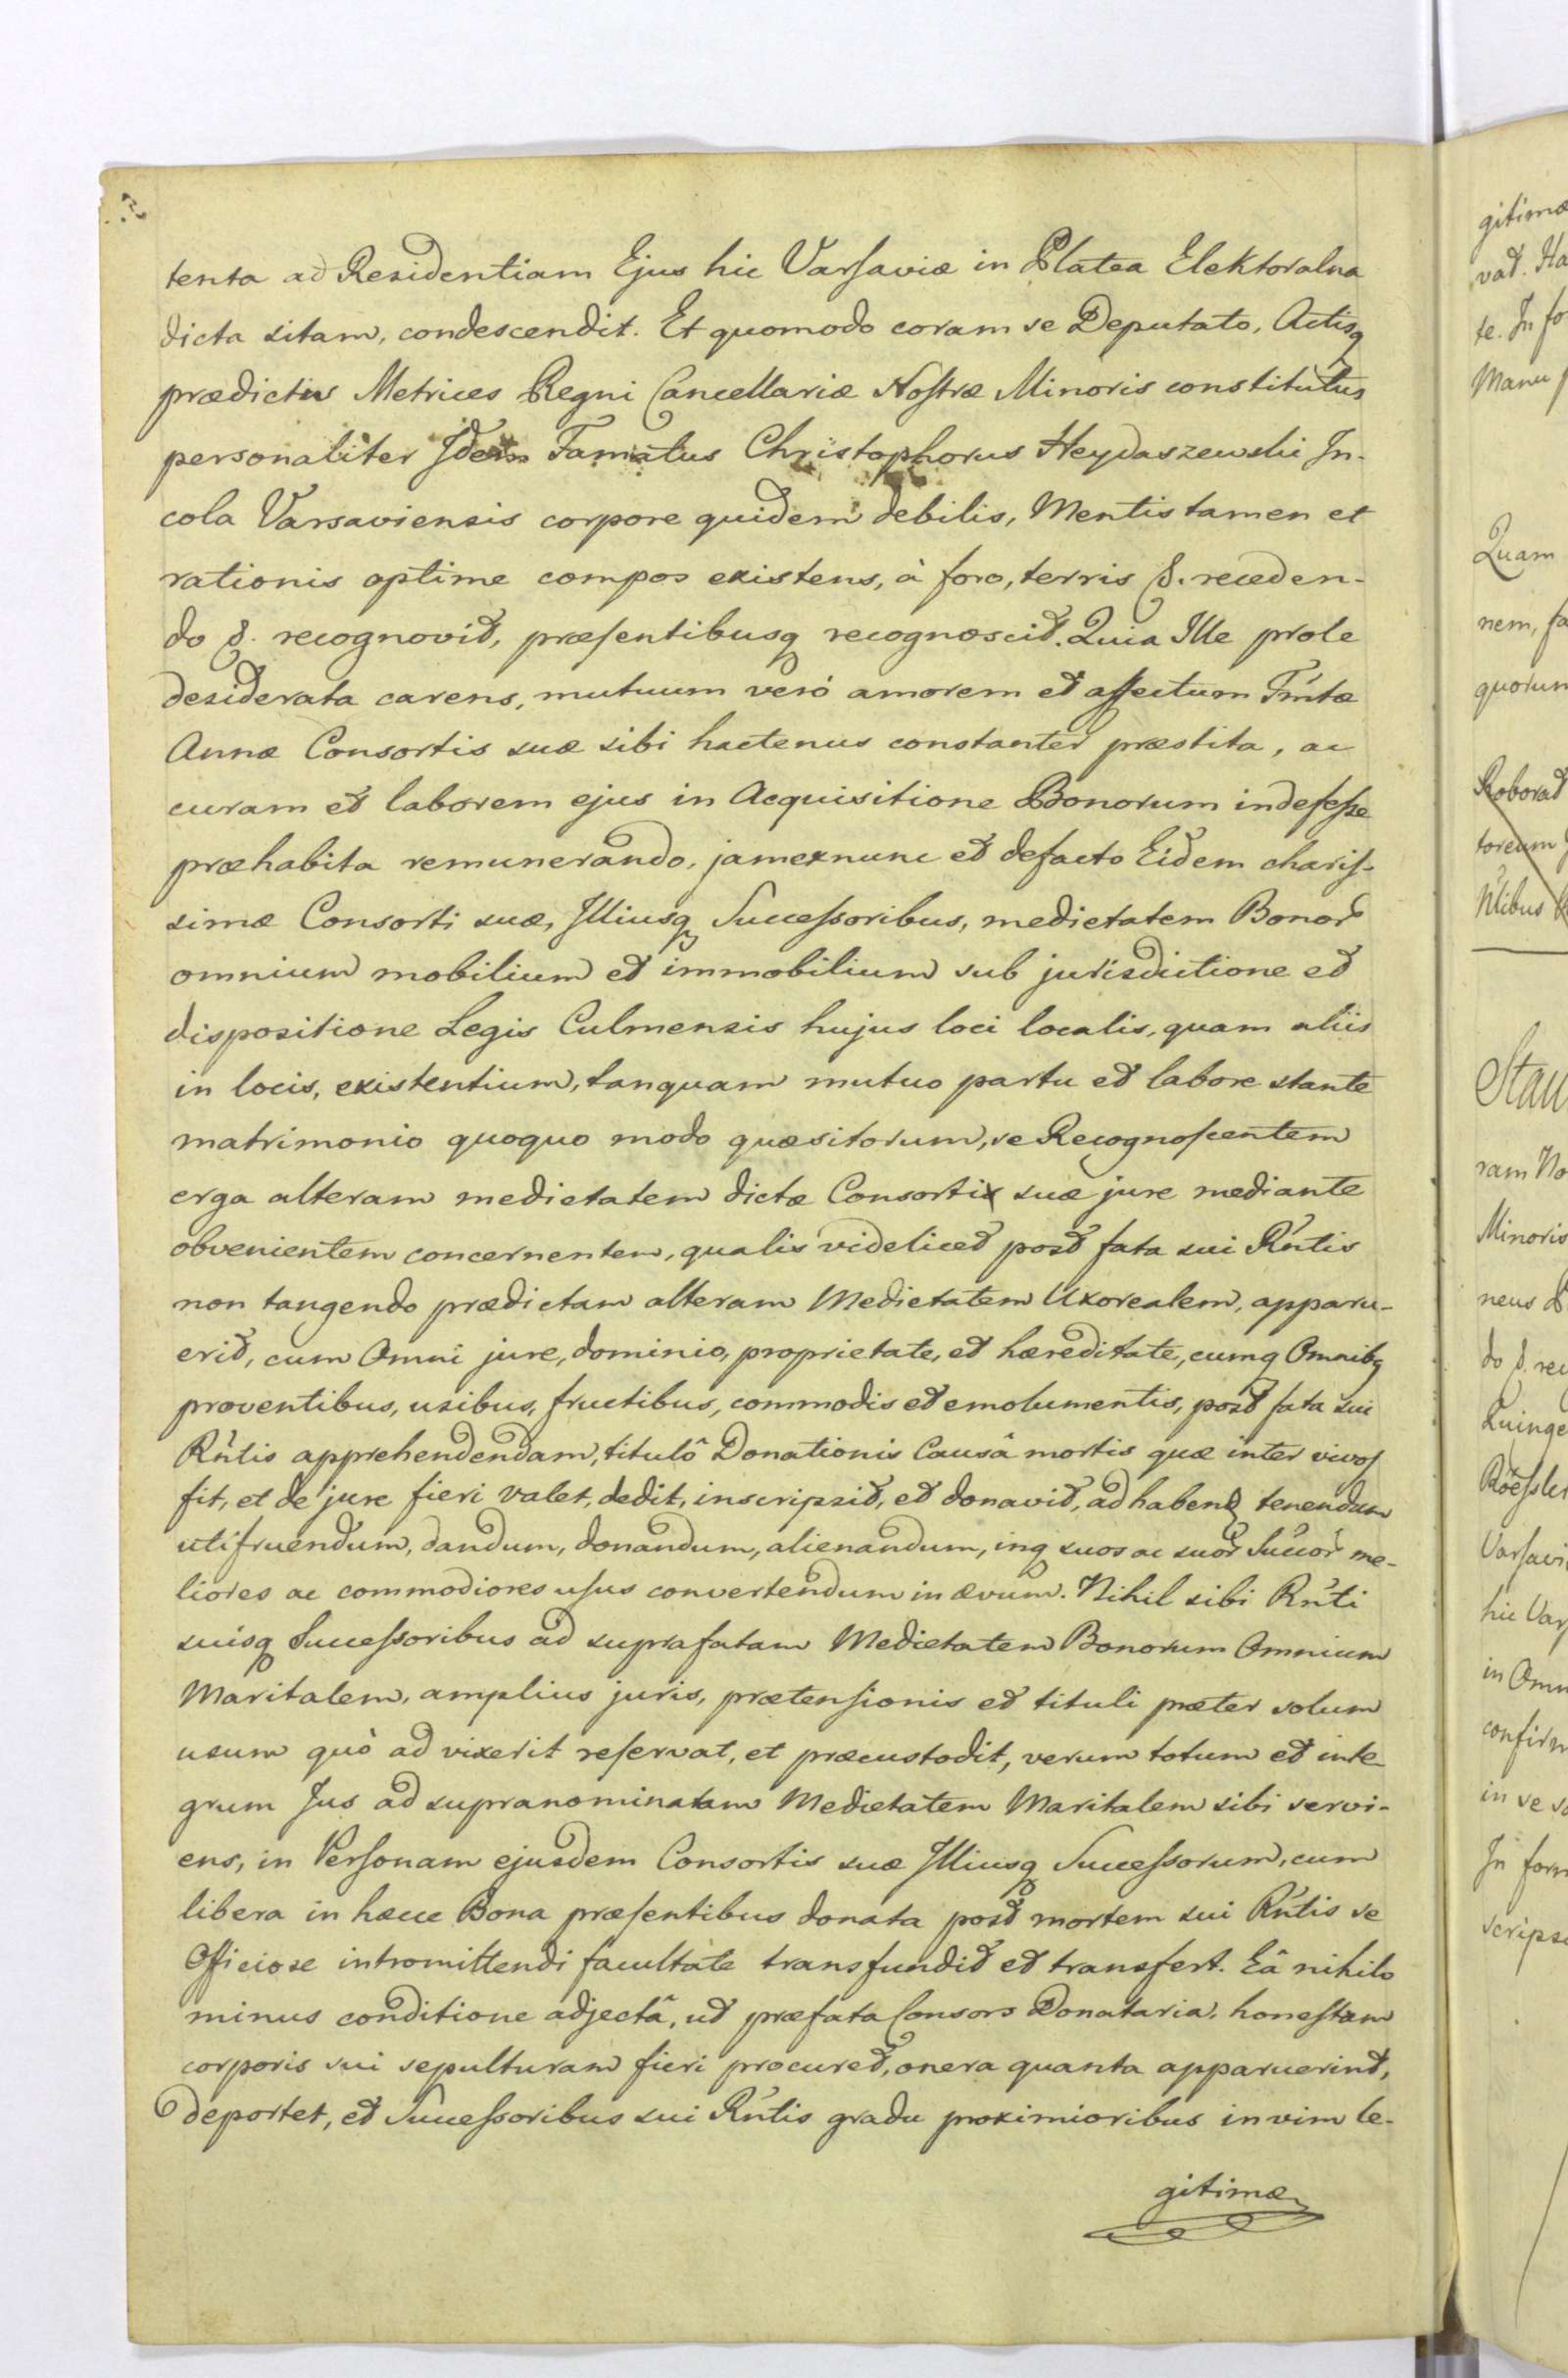 tenta ad Residentiam Ejus hic Varsaviæ in Platea Elektoralna
dicta sitam, condescendit. Et quomodo coram se Deputato, Actisq
prædictis Metrices Regni Cancellariæ Nostræ Minoris constitutus
personaliter Idem Famatus Christophorus Heydaszewski In-
cola Varsaviensis corpore quidem debilis, Mentis tamen et
rationis optime compos existens, à foro, terris &. receden-
do &. recognovit, præsentibusq recognoscit. Quia Ille prole
desiderata carens, mutuum verò amorem et affectum Fmtæ
Annæ Consortis suæ sibi hactenus constanter præstita, ac
curam et laborem ejus in Acquisitione Bonorum indefesse
præhabita remunerando, jamexnunc et defacto Eidem charis-
simæ Consorti suæ, Illiusq Successoribus, medietatem Bonor
omnium mobilium et immobilium sub jurisdictione et
dispositione Legis Culmensis hujus loci localis, quam aliis
in locis, existentium, tanquam mutuo partu et labore stante
matrimonio quoquo modo quæsitorum, se Recognoscentem
erga alteram medietatem dictæ Consorti suæ jure mediante
obvenientem concernentem, qualis videlicet post fata sui Rntis
non tangendo prædictam alteram Medietatem Uxorealem, apparu-
erit, cum Omni jure, dominio, proprietate, et hæreditate, cumq Omnibq
proventibus, usibus, fructibus, commodis et emolumentis, post fata sui
Rntis apprehendendam, titulô Donationis Causâ mortis quæ inter vivos
fit, et de jure fieri valet, dedit, inscripsit, et donavit, ad habend tenendum
utifruendum, dandum, donandum, alienandum, inq suos ac suor Succor me-
liores ac commodiores usus convertendum in ævum. Nihil sibi Rnti
suisq Successoribus ad suprafatam Medietatem Bonorum Omnium
Maritalem, amplius juris, prætensionis et tituli præter solum
usum quò ad vixerit reservat, et præcustodit, verum totum et inte
grum Jus ad supranominatam Medietatem Maritalem sibi servi-
ens, in Personam ejusdem Consortis suæ Illiusq Successorum, cum
libera in hæcce Bona præsentibus donata post mortem sui Rntis se
Officiose intromittendi facultate transfundit et transfert. Eâ nihilo
minus conditione adjectâ, ut præfata Consors Donataria, honestam
corporis sui sepulturam fieri procuret, onera quanta apparuerint,
deportet, et Successoribus sui Rntis gradu proximioribus in vim le-
gitimæ
gitimæ
vat. Ha
te. In fo
Manu
Quam
nem, fa
quorum
Roborat
toreum
Ntibus
Stan
ram No
Minoris
neus &
do &. rec
Quinge
Roessler
Varsavi
hic Var
in Omn
confirm
in se
In form
scripsi